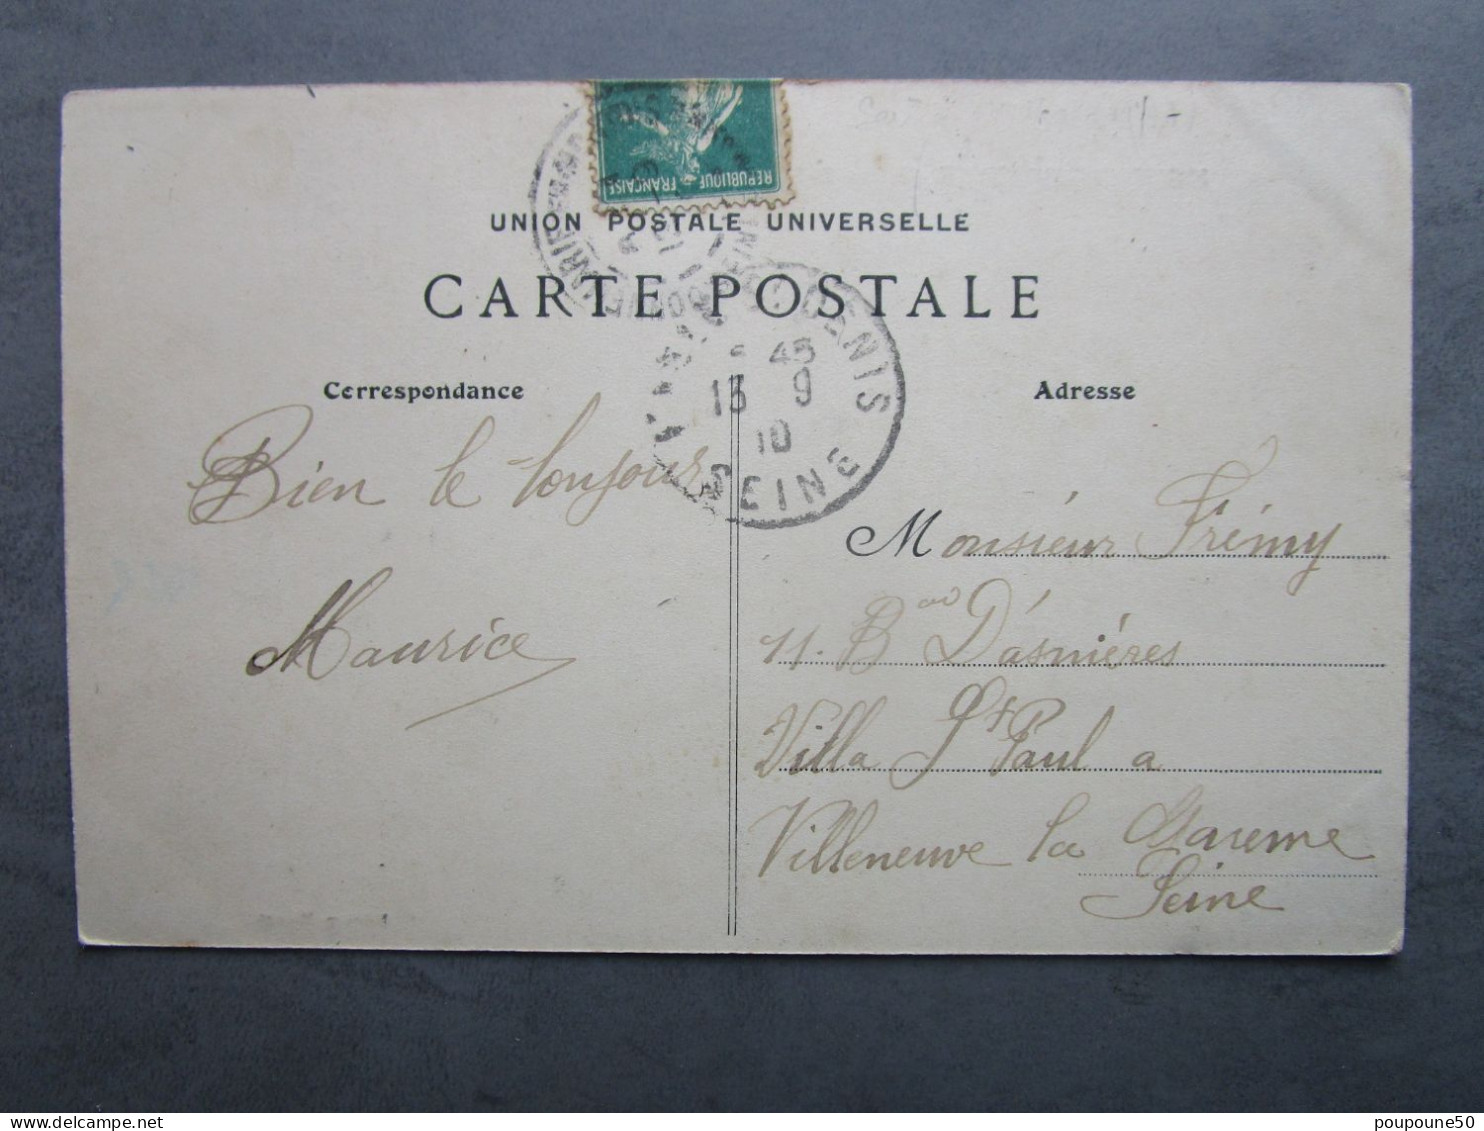 REPUBLIQUE FRANÇAISE
UNION POSTALE UNIVERSELLE
CARTE POSTALE
DENIS
45
13 9
10
SEINE
Correspondance
Adresse
Bien le bonjour
Maurice
Monsieur Frémy
11. Bard D'asniéres
Villa St Paul a
Villeneuve la Garenne
Seine
poupoune50